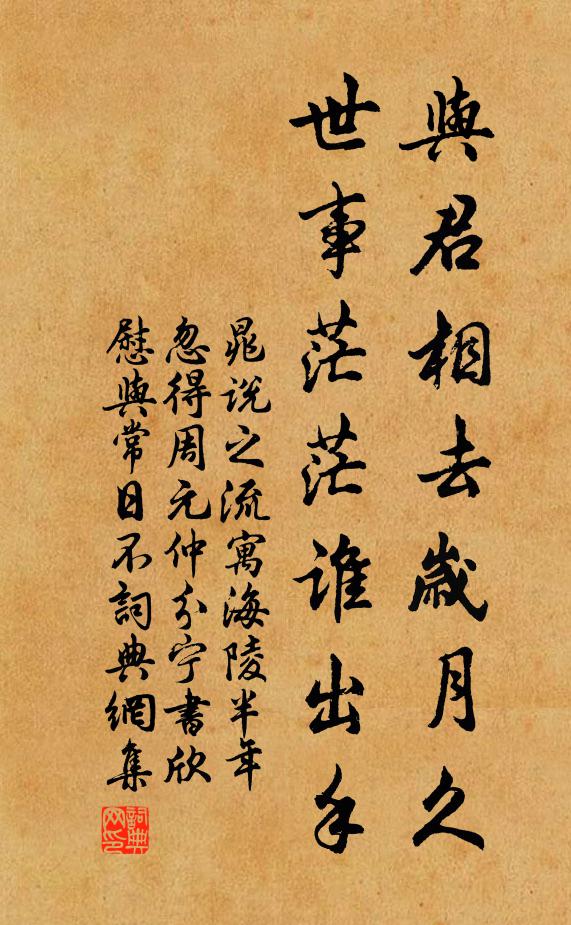 與君相去歲月久
世事茫茫誰出手
晁說之流寓海陵半年
忽得周元仲分宁書欣
慰與常日不詞典網集
詞典网印